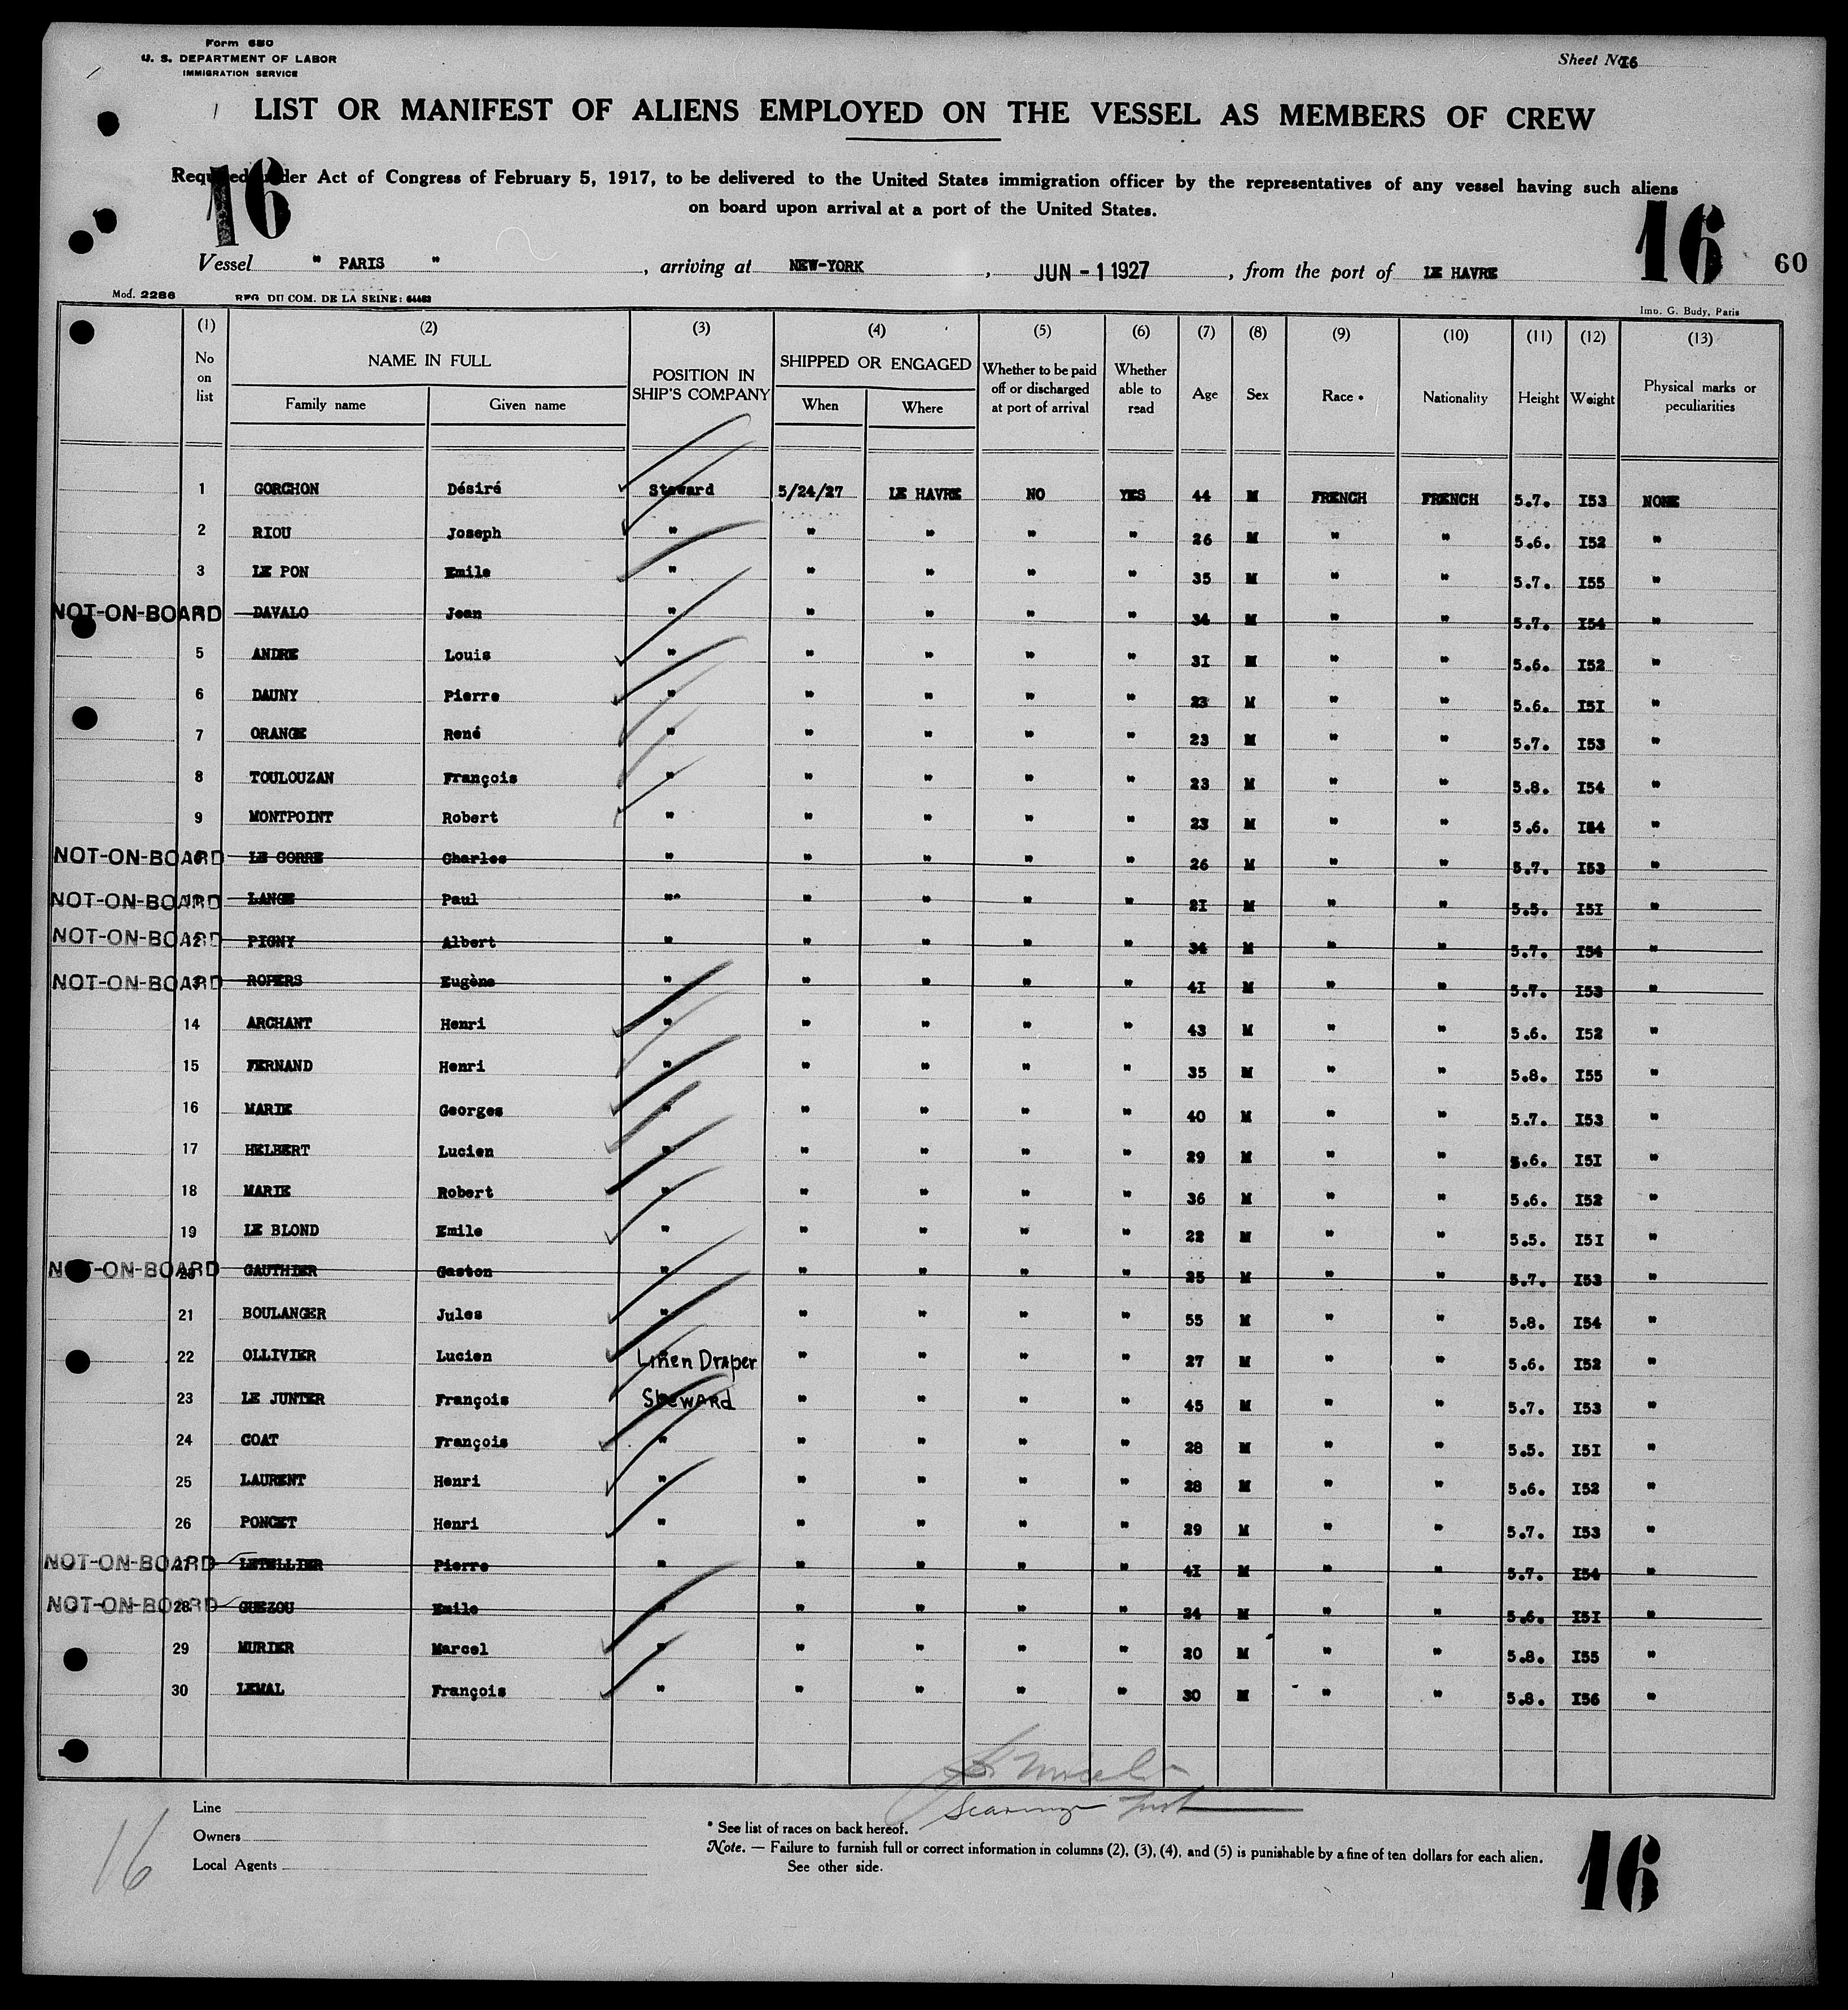 Form 680
U. S. DEPARTMENT OF LABOR
IMMIGRATION SERVICE
Sheet No. I6
LIST OR MANIFEST OF ALIENS EMPLOYED ON THE VESSEL AS MEMBERS OF CREW
Required under Act of Congress of February 5, 1917, to be delivered to the United States immigration officer by the representatives of any vessel having such aliens
on board upon arrival at a port of the United States.
16
16
60
Vessel " PARIS " , arriving at NEW-YORK , JUN - 1 1927 , from the port of LE HAVRE
Mod. 2286 REG. DU COM. DE LA SEINE: 64463 Imp. G. Budy, Paris
(1) (2) (3) (4) (5) (6) (7) (8) (9) (10) (11) (12) (13)
No on list NAME IN FULL Family name Given name POSITION IN SHIP'S COMPANY SHIPPED OR ENGAGED When Where Whether to be paid off or discharged at port of arrival Whether able to read Age Sex Race * Nationality Height Weight Physical marks or peculiarities
1 GORCHON Désiré Steward 5/24/27 LE HAVRE NO YES 44 M FRENCH FRENCH 5.7. I53 NONE
2 RIOU Joseph " " " " " 26 M " " 5.6. I52 "
3 LE PON Emile " " " " " 35 M " " 5.7. I55 "
NOT-ON-BOARD DAVALO Jean " " " " " 34 M " " 5.7. I54 "
5 ANDRE Louis " " " " " 3I M " " 5.6. I52 "
6 DAUNY Pierre " " " " " 23 M " " 5.6. I5I "
7 ORANGE René " " " " " 23 M " " 5.7. I53 "
8 TOULOUZAN François " " " " " 23 M " " 5.8. I54 "
9 MONTPOINT Robert " " " " " 23 M " " 5.6. "
NOT-ON-BOARD LE CORRE Charles " " " " " 26 M " " 5.7. I53 "
NOT-ON-BOARD LANGE Paul " " " " " 2I M " " 5.5. I5I "
NOT-ON-BOARD PIGNY Albert " " " " " 34 M " " 5.7. I54 "
NOT-ON-BOARD ROPERS Eugène " " " " " 4I M " " 5.7. I53 "
14 ARCHANT Henri " " " " " 43 M " " 5.6. I52 "
15 FERNAND Henri " " " " " 35 M " " 5.8. I55 "
16 MARIE Georges " " " " " 40 M " " 5.7. I53 "
17 HELBERT Lucien " " " " " 29 M " " 5.6. I5I "
18 MARIE Robert " " " " " 36 M " " 5.6. I52 "
19 LE BLOND Emile " " " " " 22 M " " 5.5. I5I "
NOT-ON-BOARD 20 GAUTHIER Gaston " " " " " 25 M " " 5.7. I53 "
21 BOULANGER Jules " " " " " 55 M " " 5.8. I54 "
22 OLLIVIER Lucien Linen Draper " " " " 27 M " " 5.6. I52 "
23 LE JUNTER François Steward " " " " 45 M " " 5.7. I53 "
24 GOAT François " " " " " 28 M " " 5.5. I5I "
25 LAURENT Henri " " " " " 28 M " " 5.6. I52 "
26 PONCET Henri " " " " " 29 M " " 5.7. I53 "
NOT-ON-BOARD LETELLIER Pierre " " " " " 4I M " " 5.7. I54 "
NOT-ON-BOARD 28 GUEZOU Emile " " " " " 24 M " " 5.6. I5I "
29 MURIER Marcel " " " " " 20 M " " 5.8. I55 "
30 LEMAL François " " " " " 30 M " " 5.8. I56 "
Line
Owners
Local Agents
* See list of races on back hereof.
Note. — Failure to furnish full or correct information in columns (2), (3), (4), and (5) is punishable by a fine of ten dollars for each alien.
See other side.
16
16